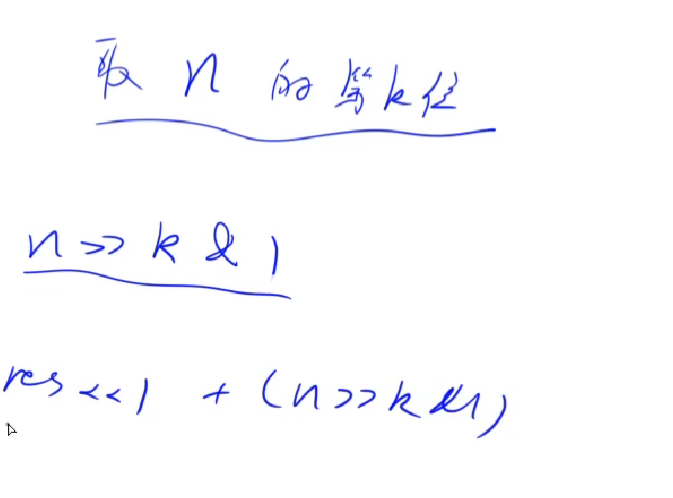 取 n 的第k位
n >> k & 1
res << 1 + (n >> k & 1)